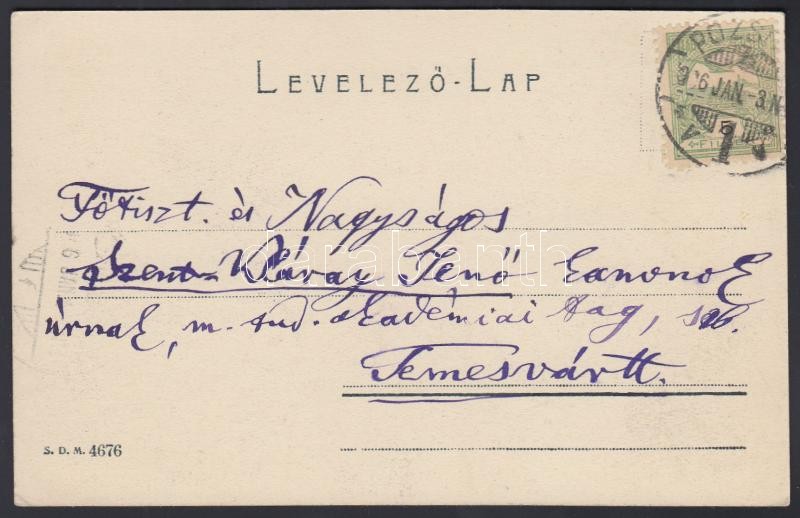 LEVELEZŐ-LAP
POZS
6 JAN. -3. N
Főtiszt. és Nagyságos
Szent- Váray Jenő Canonok
úrnak, m. tud. akadémiai tag, stb.
Temesvártt.
S. D. M. 4676
darabanth